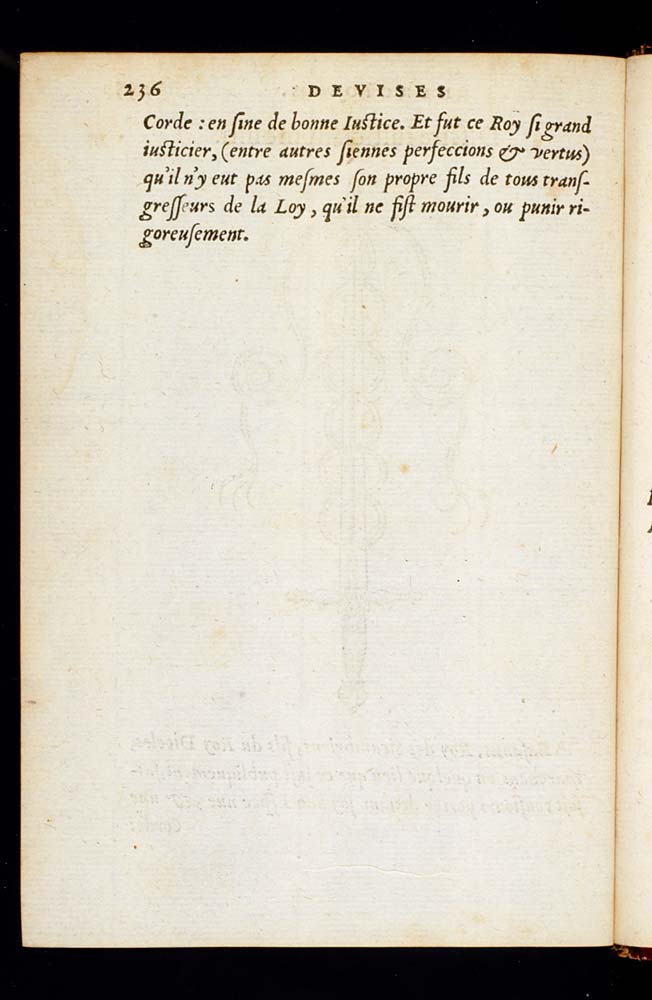 236 DEVISES
Corde : en sine de bonne Iustice. Et fut ce Roy si grand
iusticier, (entre autres siennes perfeccions & vertus)
qu'il n'y eut pas mesmes son propre fils de tous trans-
gresseurs de la Loy, qu'il ne fist mourir, ou punir ri-
goreusement.